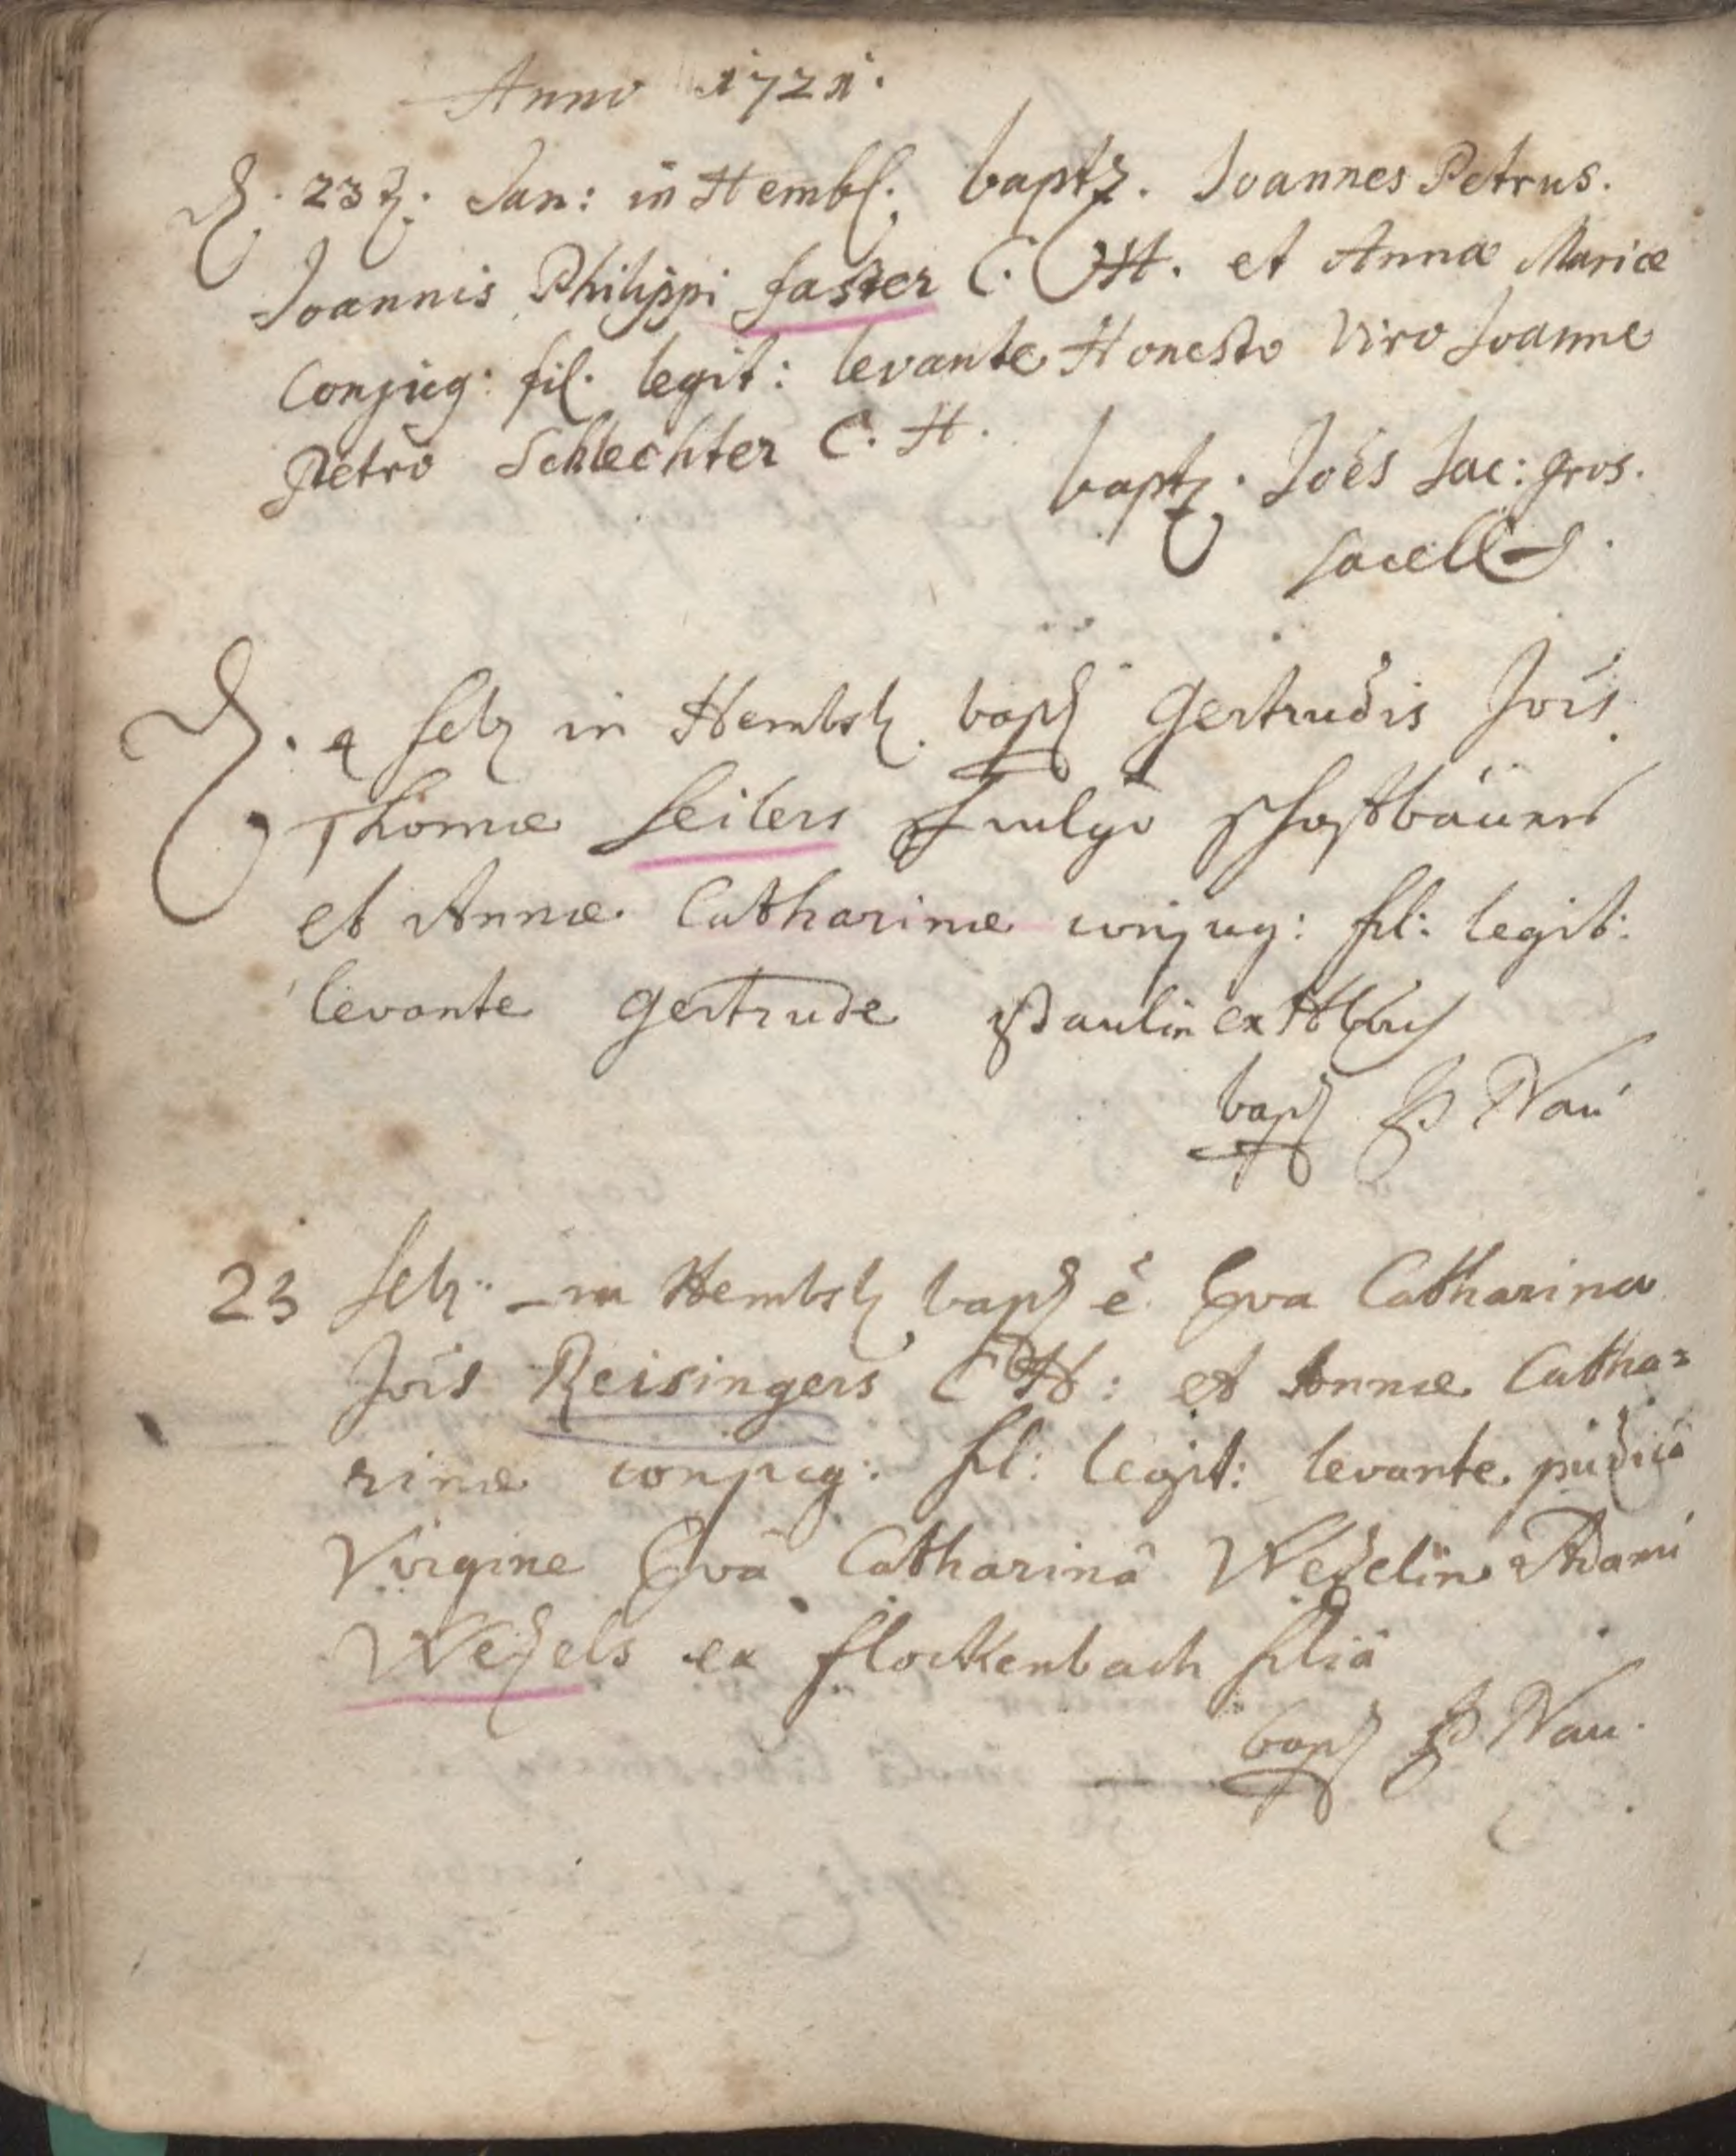 Anno 1721.
D. 23tz. Jan: in Hembs. baptz. Joannes Petrus.
Joannis Philippi faster C. H. et Annæ Mariæ
Conjug: fil. legit: levante Honesto Viro Joanne
Petro Schlechter C. H.
baptz. Joës Jac: gros.
sacell
D. 4 feb in Hembsb. bapt Gertrudis Jois
Thomæ Seilers vulgo
et Annæ Catharinæ conjug: fil: legit:
levante Gertrude Paulin ex
bapt P Nau
23 feb: in Hembsb bapt ë Eva Catharina
Jois Reisingers C H: et Annæ Catha=
rinæ conjug: fil: legit: levante pudica
Virgine Evâ Catharinâ Wezelin Adami
Wezels ex flockenbach filiâ
bapt P Nau.